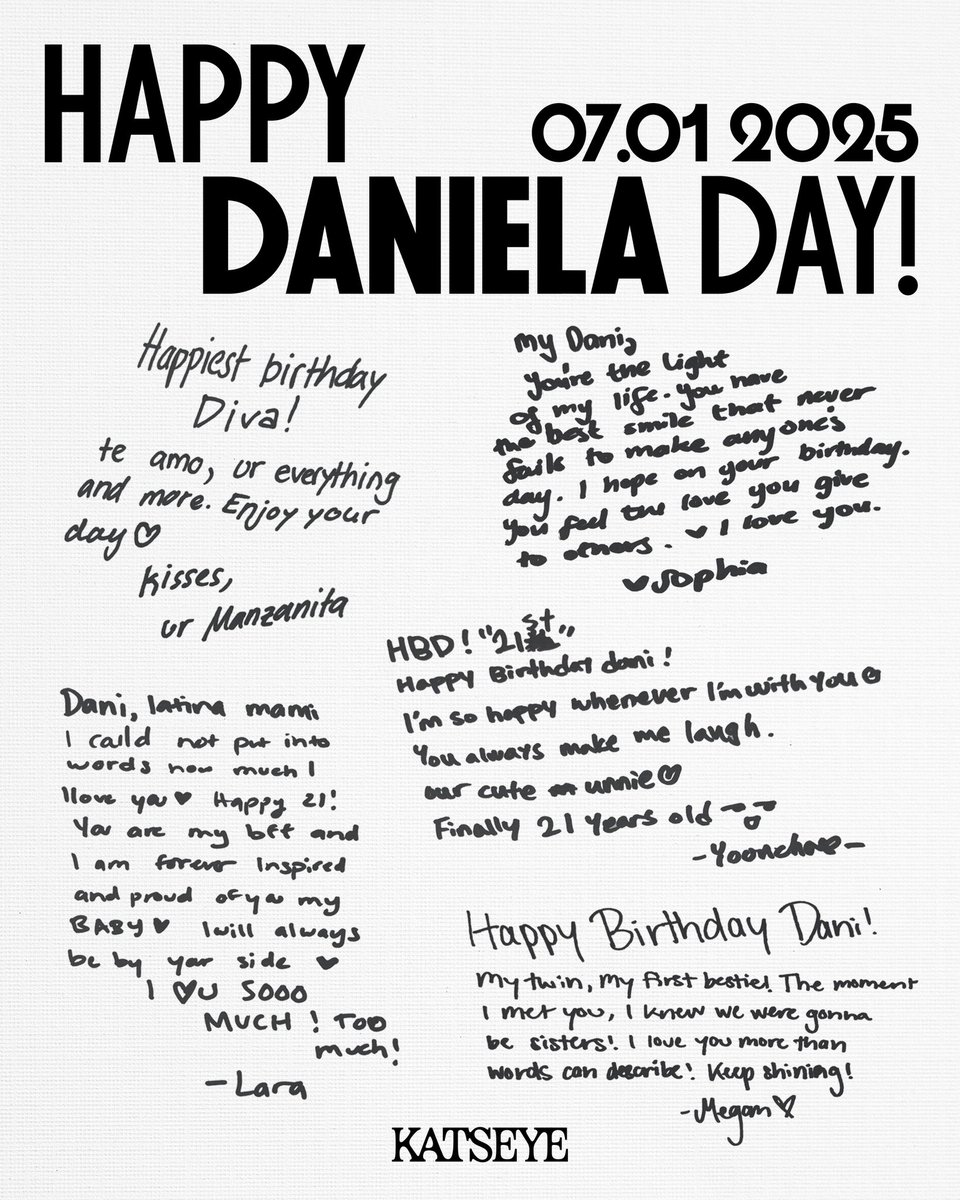 HAPPY
07.01 2025
DANIELA DAY!
Happiest birthday
Diva!
te amo, ur everything
and more. Enjoy your
day♡
kisses,
ur Manzanita
My Dani,
You're the light
of my life. You have
the best smile that never
fails to make anyone's
day. I hope on your birthday.
you feel the love you give
to others. ♥ I love you.
♥Sophia
HBD! "21st"
Happy Birthday dani!
I'm so happy whenever I'm with you
You always make me laugh.
our cute unnie♡
Finally 21 years old
-Yoonchae-
Dani, latina mami
I could not put into
words how much I
llove you♥ Happy 21!
You are my bff and
I am forever inspired
and proud of you my
BABY♥ I will always
be by your side ♥
I ♡U SOOO
MUCH! TOO
much!
-Lara
Happy Birthday Dani!
My twin, my first bestie! The moment
I met you, I knew we were gonna
be sisters! I love you more than
words can describe! Keep shining!
-Megan♡
KATSEYE